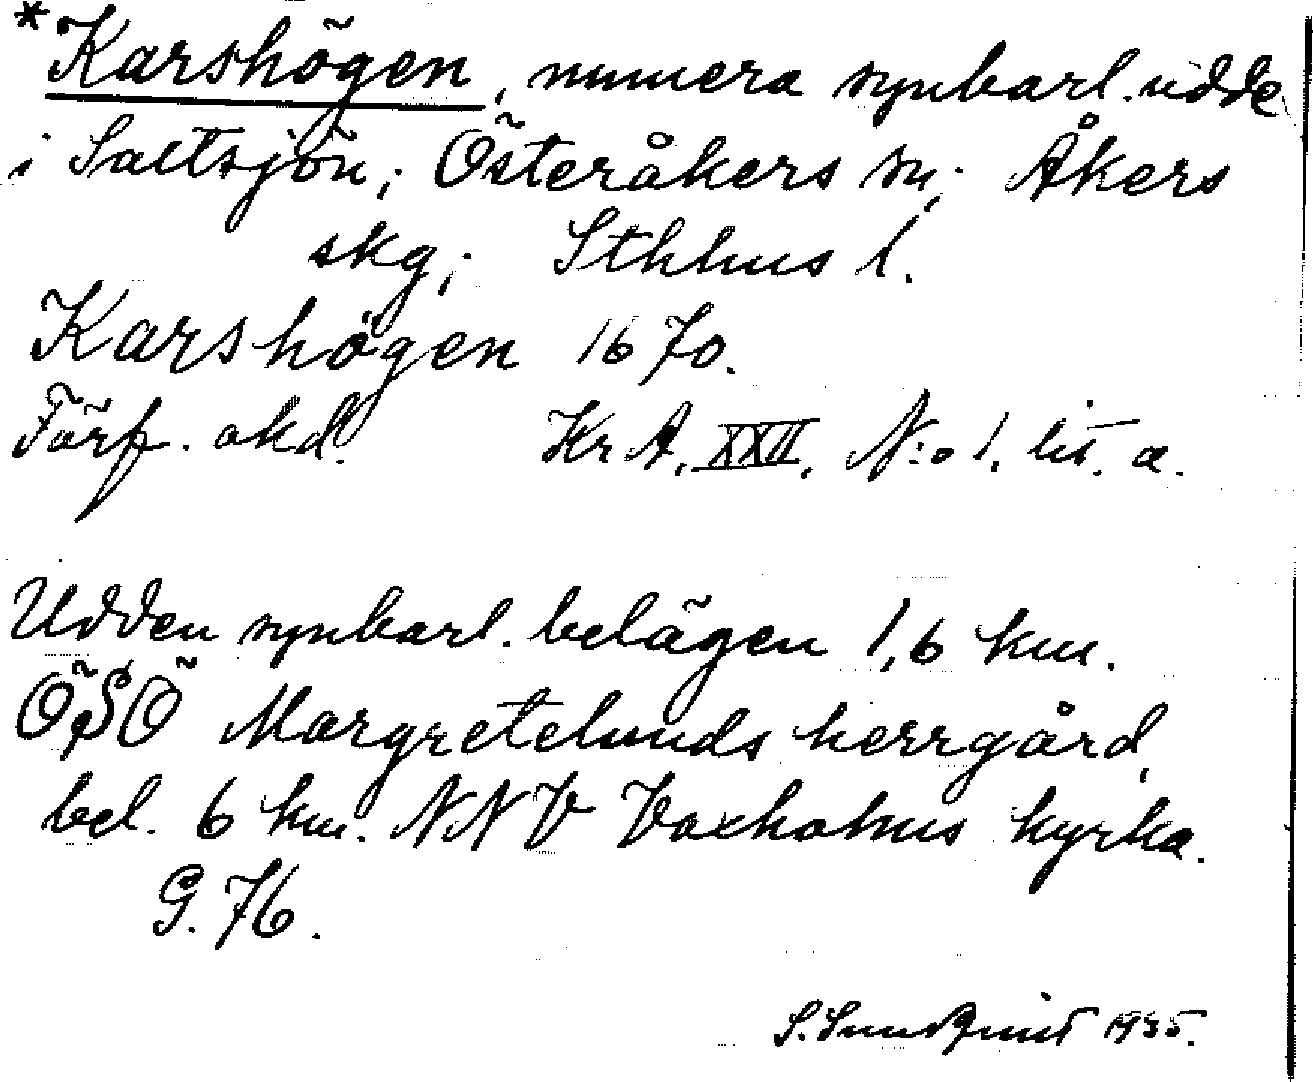 *Karshögen, numera synbarl. udde
i Saltsjön; Österåkers sn; Åkers
skg; Sthlms l.
Karshögen 1670.
Förf. okd. Kr A. XXII, N:o 1, lit. a.
Udden synbarl. belägen 1,6 km.
ÖSÖ Margretelunds herrgård,
bel. 6 km. NNV Vaxholms kyrka.
G. 76.
S. Sundquist 1935.